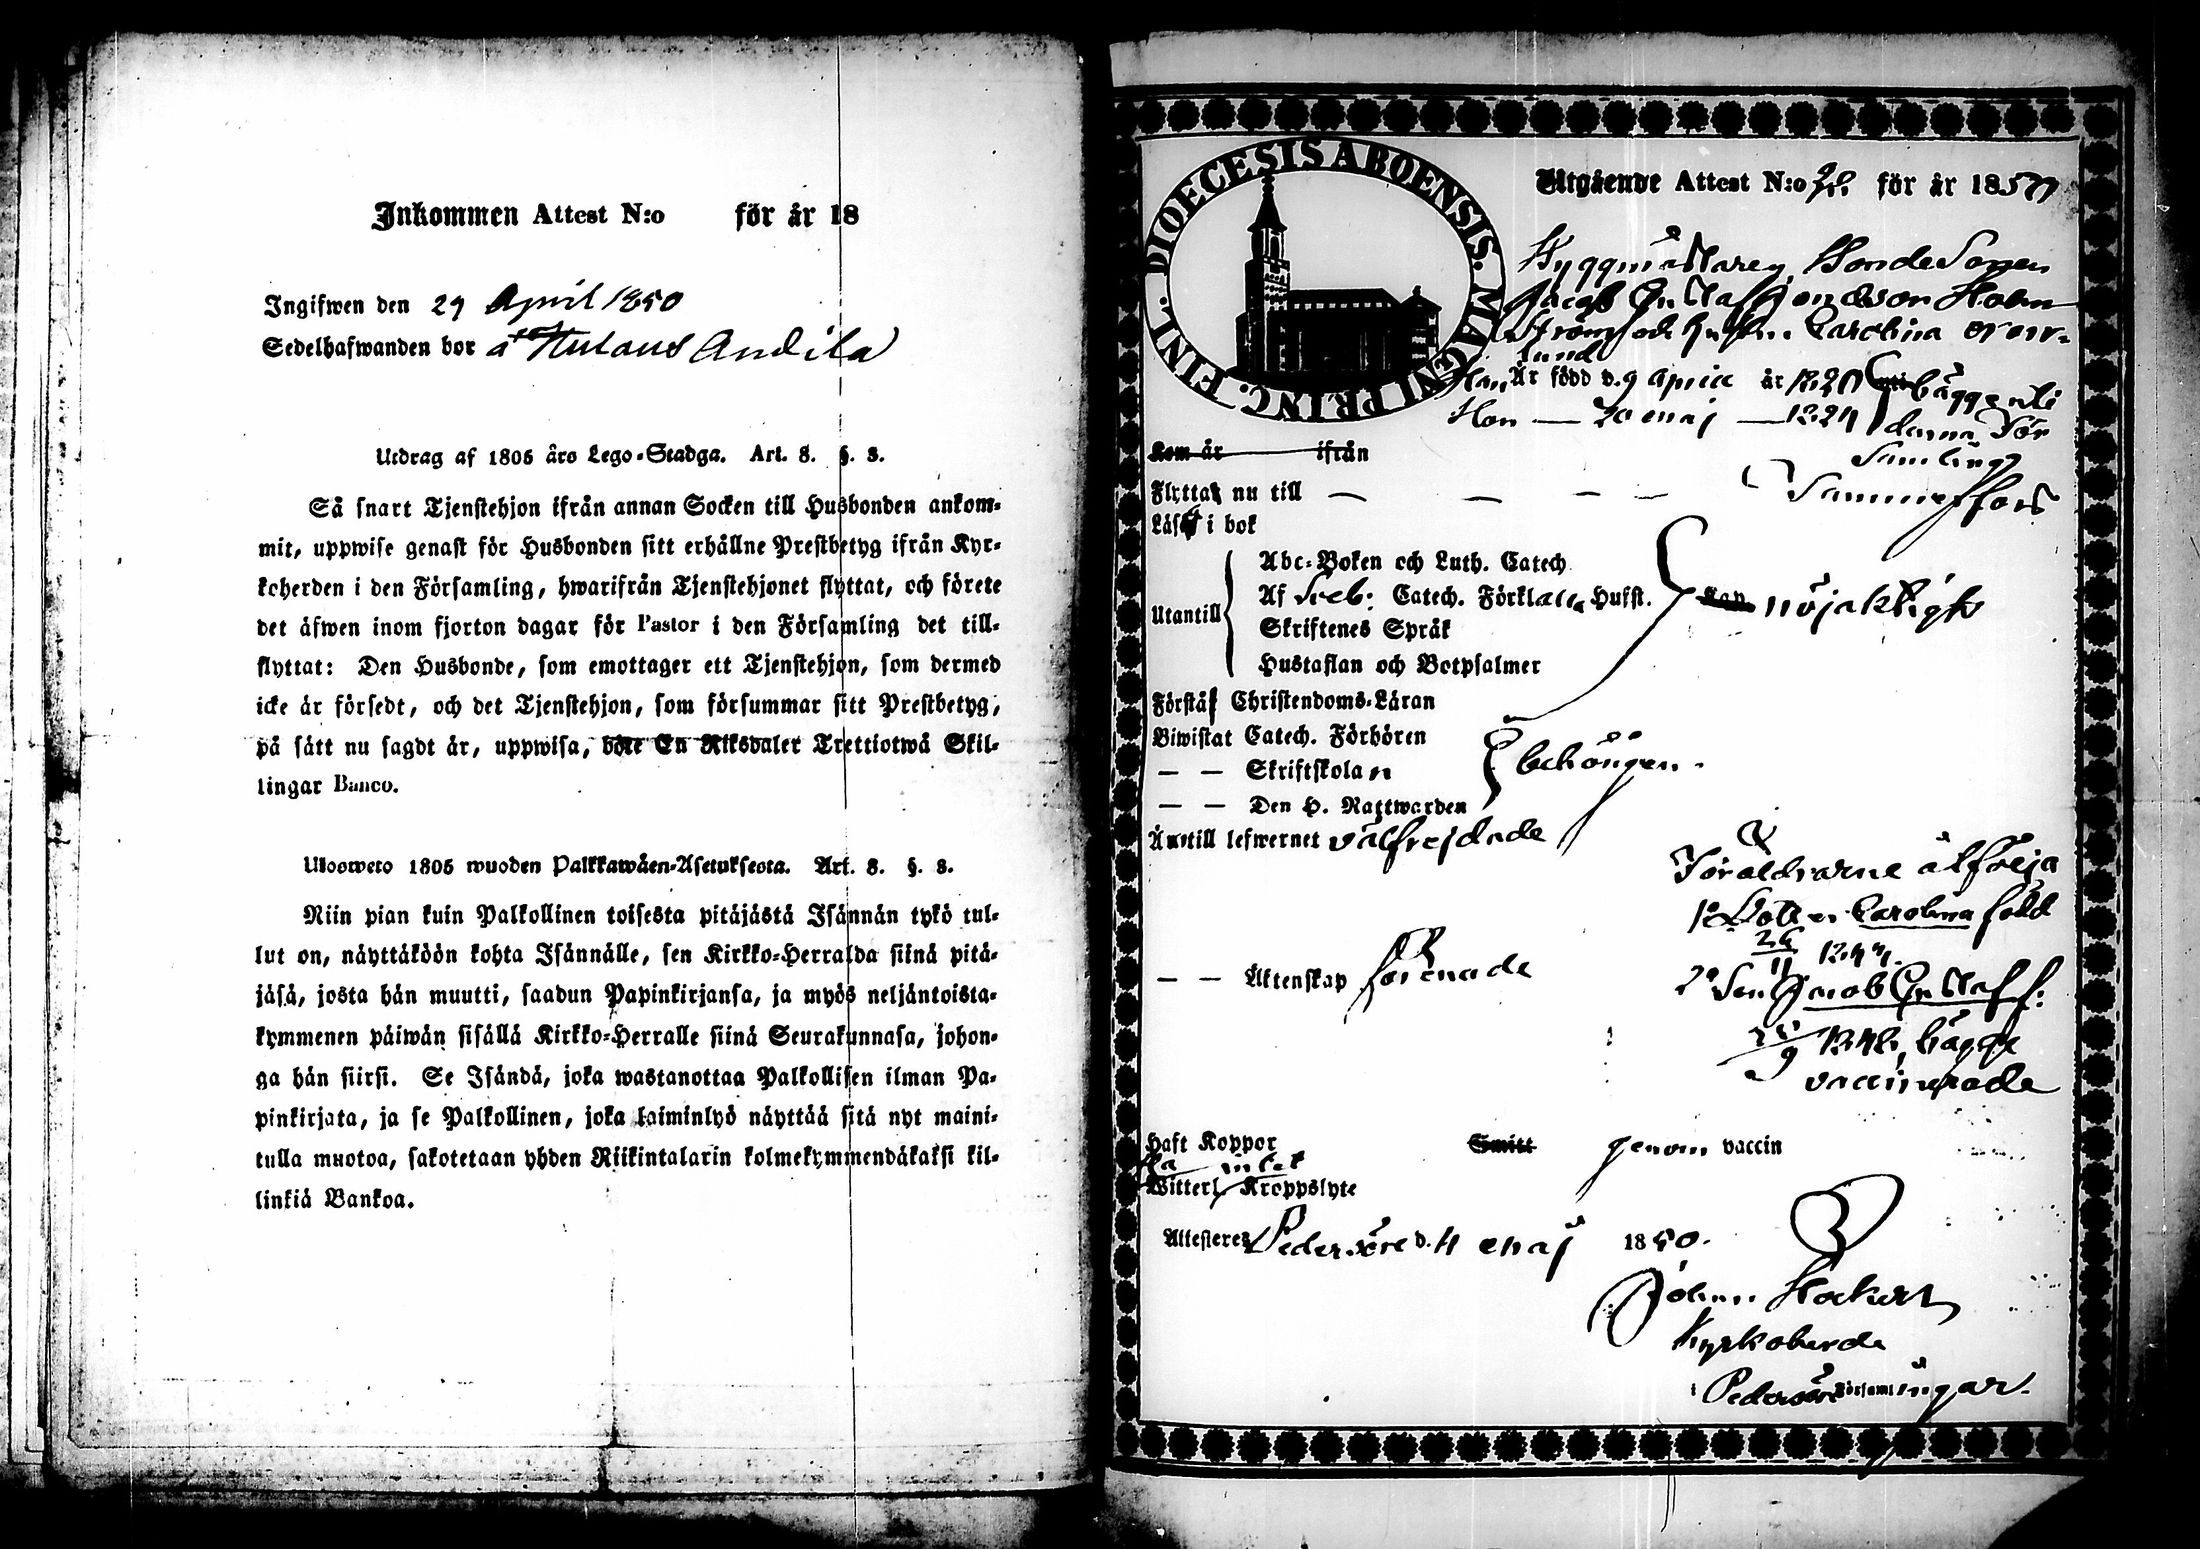 Inkommen Attest N:o för år 18
Ingifwen den 29 April 1850
Sedelhafwanden bor å Andila
Utdrag af 1805 års Lego-Stadga. Art. 8. §. 3.
Så snart Tjenstehjon ifrån annan Socken till Husbonden ankom-
mit, uppwise genast för Husbonden sitt erhållne Prestbetyg ifrån Kyr-
koherden i den Församling, hwarifrån Tjenstehjonet flyttat, och förete
det äfwen inom fjorton dagar för Pastor i den Församling det till-
flyttat: Den Husbonde, som emottager ett Tjenstehjon, som dermed
icke är försedt, och det Tjenstehjon, som försummar sitt Prestbetyg,
på sätt nu sagdt är, uppwisa, böte En Riksdaler Trettiotwå Skil-
lingar Banco.
Ulosweto 1805 wuoden Palkkawäen-Asetuksesta. Art. 8. §. 3.
Niin pian kuin Palkollinen toisesta pitäjästä Isännän tykö tul-
lut on, näyttäköön kohta Isännälle, sen Kirkko-Herralda siinä pitä-
jäsä, josta hän muutti, saadun Papinkirjansa, ja myös neljäntoista-
kymmenen päiwän sisällä Kirkko-Herralle siinä Seurakunnasa, johon-
ga hän siirsi. Se Isändä, joka wastanottaa Palkollisen ilman Pa-
pinkirjata, ja se Palkollinen, joka laiminlyö näyttää sitä nyt maini-
tulla muotoa, sakotetaan yhden Riikintalarin kolmekymmendäkaksi kil-
linkiä Bankoa.
DIOECESIS ABOENSIS. MAGNI PRINC. FINL.
Utgående Attest N:o för år 1850
Byggmästaren, BondeSonen
Jacob Gustaf Holm
Ström och hustru Carolina
lund
Han Är född d. 9 April år 1820 bägge uti
Hon — 20 maj — 1824 denna För
Samling
Kom år ifrån
Flyttat nu till — — — —
Läser i bok
Abc-Boken och Luth. Catech
Utantill Af Sveb: Catech. Förklar. Hufst. nöjaktigt
Skriftenes Språk
Hustaflan och Botpsalmer
Förstår Christendoms-Läran
Biwistat Catech. Förhören
— — Skriftskolan behörigen.
— — Den H. Nattwarden
Är till lefwernet välfrejdade
Föräldrarne älfreja
1o Dotter Carolina född
26/11 1844.
— — Äktenskap förenade
2o Son Jacob Gustaf f:
/9 1848, bägge
vaccinerade
Haft Koppor Smitt genom vaccin
Ha intet
Witterl. Kroppslyte
Attesteres Pedersöre d. 4 maj 1850.
Johan Hockert
Kyrkoherde
i Pedersöre Församlingar.